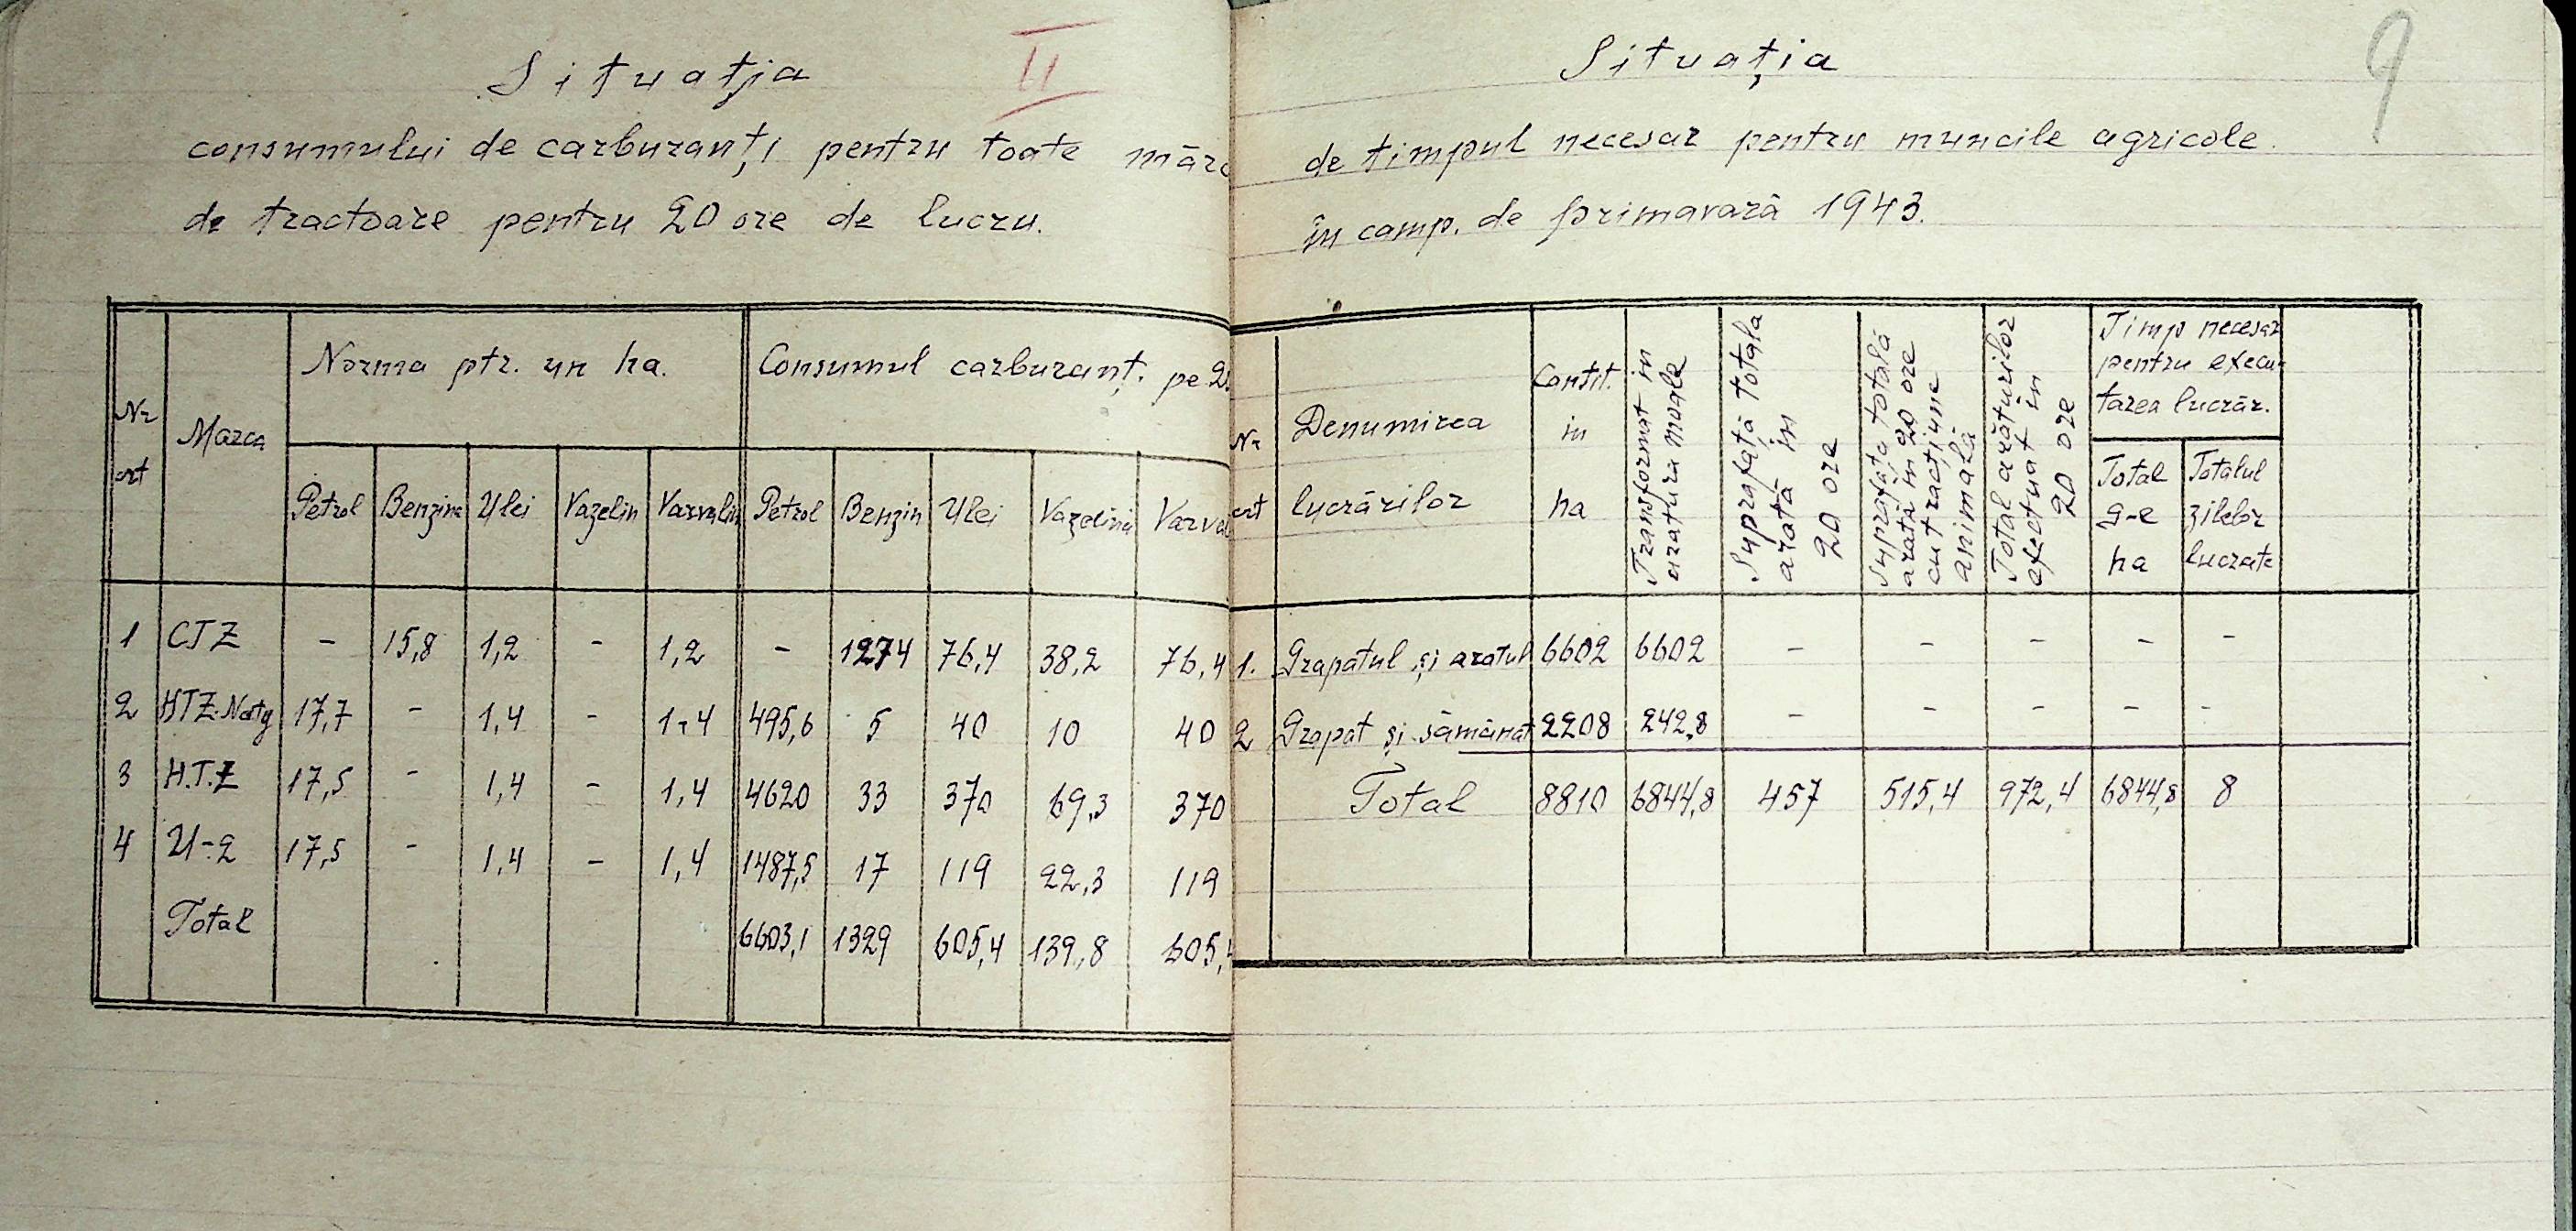 Situația
II
consumului de carburanți pentru toate mărc
de tractoare pentru 20 ore de lucru.
Nr crt | Marca | Norma ptr. un ha. | Consumul carburanț. pe 2
Petrol | Benzina | Ulei | Vazelin | Varvalin | Petrol | Benzin | Ulei | Vazelină | Varva
1 | CTZ | - | 15,8 | 1,2 | - | 1,2 | - | 1274 | 76,4 | 38,2 | 76,4
2 | HTZ-Naty | 17,7 | - | 1,4 | - | 1-4 | 495,6 | 5 | 40 | 10 | 40
3 | H.T.Z | 17,5 | - | 1,4 | - | 1,4 | 4620 | 33 | 370 | 69,3 | 370
4 | U-2 | 17,5 | - | 1,4 | - | 1,4 | 1487,5 | 17 | 119 | 22,3 | 119
Total | 6603,1 | 1329 | 605,4 | 139,8 | 605,4
9
Situația
de timpul necesar pentru muncile agricole
în camp. de primavară 1943.
Nr crt | Denumirea lucrărilor | Cantit. in ha | Transformat in aratura moale | Suprafață totala arată in 20 ore | Suprafața totală arată in 20 ore cu tracțiune animală | Total arăturilor efectuat in 20 ore | Timp necesar pentru execu-tarea lucrăr.
Total g-e ha | Totalul zilelor lucrate
1. | Grapatul și aratul | 6602 | 6602 | - | - | - | - | -
2 | Grapat și sămănat | 2208 | 242,8 | - | - | - | - | -
Total | 8810 | 6844,8 | 457 | 515,4 | 972,4 | 6844,8 | 8